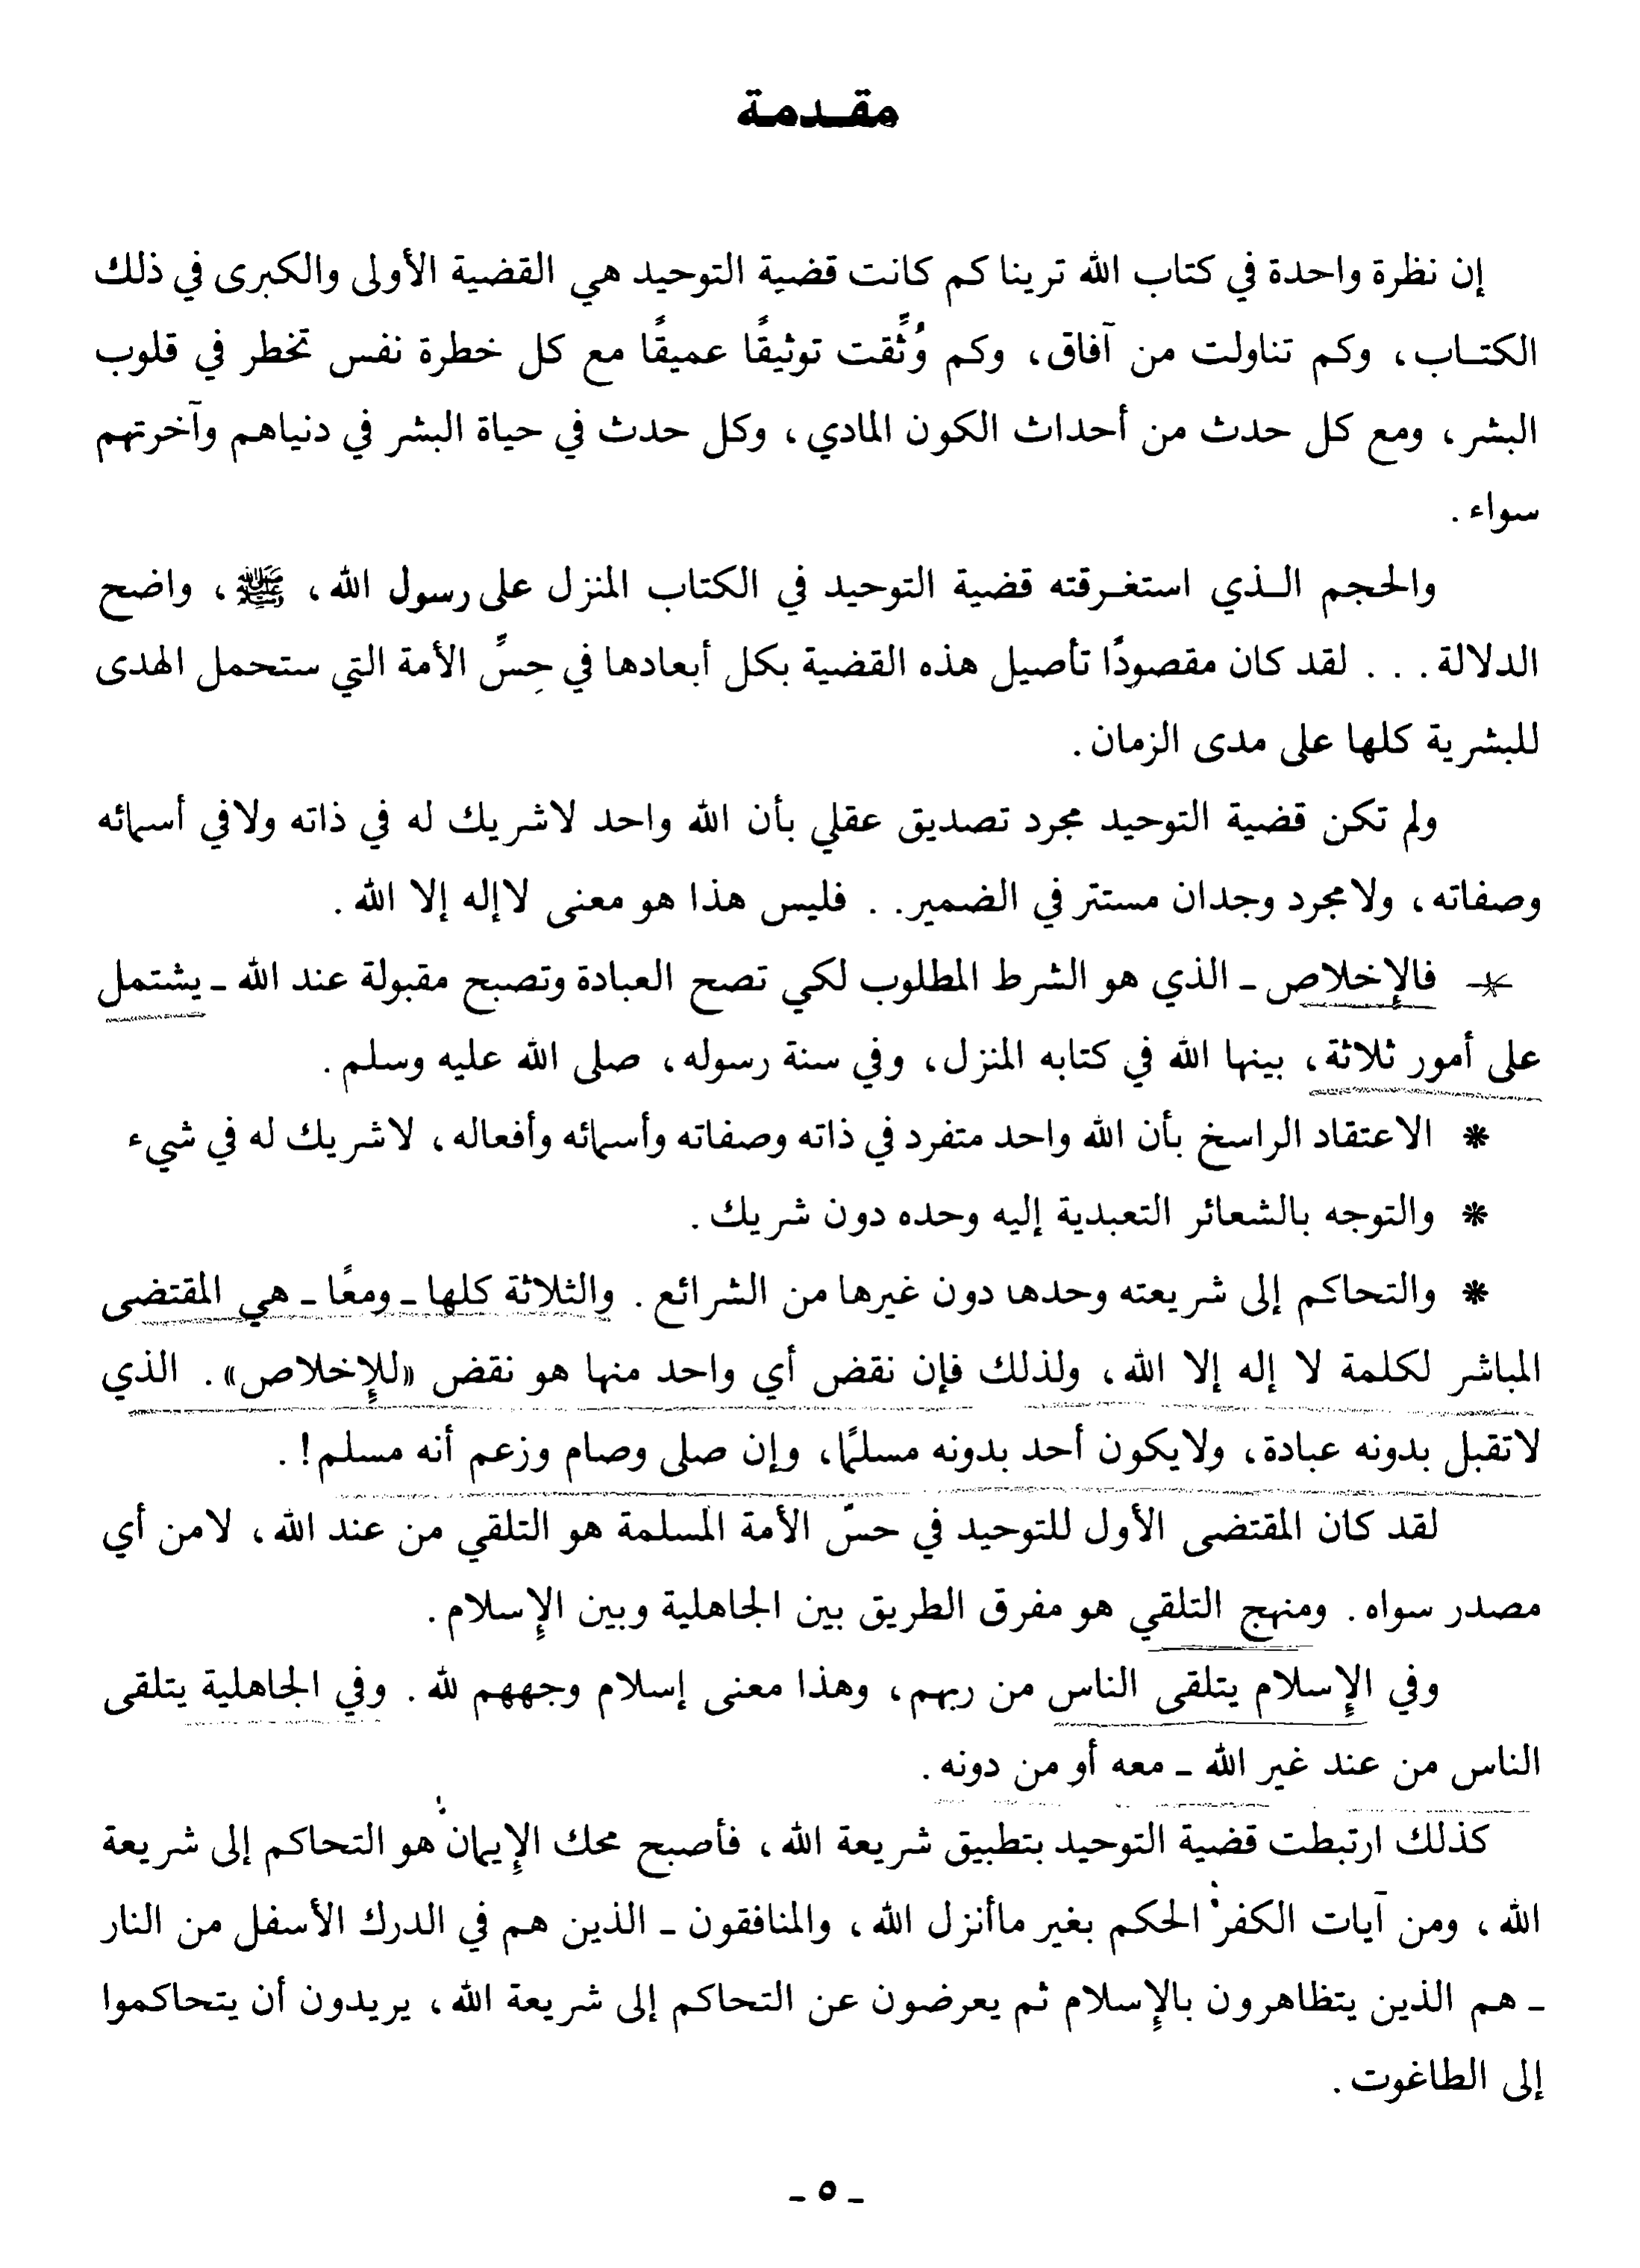 مقدمة
إن نظرة واحدة في كتاب الله ترينا كم كانت قضية التوحيد هي القضية الأولى والكبرى في ذلك
الكتاب، وكم تناولت من آفاق، وكم وُثِّقت توثيقًا عميقًا مع كل خطرة نفس تخطر في قلوب
البشر، ومع كل حدث من أحداث الكون المادي، وكل حدث في حياة البشر في دنياهم وآخرتهم
سواء.
والحجم الذي استغرقته قضية التوحيد في الكتاب المنزل على رسول الله، ﷺ، واضح
الدلالة... لقد كان مقصودًا تأصيل هذه القضية بكل أبعادها في حِسِّ الأمة التي ستحمل الهدى
للبشرية كلها على مدى الزمان.
ولم تكن قضية التوحيد مجرد تصديق عقلي بأن الله واحد لاشريك له في ذاته ولافي أسمائه
وصفاته، ولامجرد وجدان مستتر في الضمير.. فليس هذا هو معنى لاإله إلا الله.
* فالإخلاص - الذي هو الشرط المطلوب لكي تصح العبادة وتصبح مقبولة عند الله - يشتمل
على أمور ثلاثة، بينها الله في كتابه المنزل، وفي سنة رسوله، صلى الله عليه وسلم.
* الاعتقاد الراسخ بأن الله واحد متفرد في ذاته وصفاته وأسمائه وأفعاله، لاشريك له في شيء
* والتوجه بالشعائر التعبدية إليه وحده دون شريك.
* والتحاكم إلى شريعته وحدها دون غيرها من الشرائع. والثلاثة كلها - ومعًا - هي المقتضى
المباشر لكلمة لا إله إلا الله، ولذلك فإن نقض أي واحد منها هو نقض «للإخلاص». الذي
لاتقبل بدونه عبادة، ولايكون أحد بدونه مسلمًا، وإن صلى وصام وزعم أنه مسلم!.
لقد كان المقتضى الأول للتوحيد في حسّ الأمة المسلمة هو التلقي من عند الله، لامن أي
مصدر سواه. ومنهج التلقي هو مفرق الطريق بين الجاهلية وبين الإسلام.
وفي الإسلام يتلقى الناس من ربهم، وهذا معنى إسلام وجههم لله. وفي الجاهلية يتلقى
الناس من عند غير الله - معه أو من دونه.
كذلك ارتبطت قضية التوحيد بتطبيق شريعة الله، فأصبح محك الإيمان هو التحاكم إلى شريعة
الله، ومن آيات الكفر الحكم بغير ماأنزل الله، والمنافقون - الذين هم في الدرك الأسفل من النار
- هم الذين يتظاهرون بالإسلام ثم يعرضون عن التحاكم إلى شريعة الله، يريدون أن يتحاكموا
إلى الطاغوت.
- ٥ -